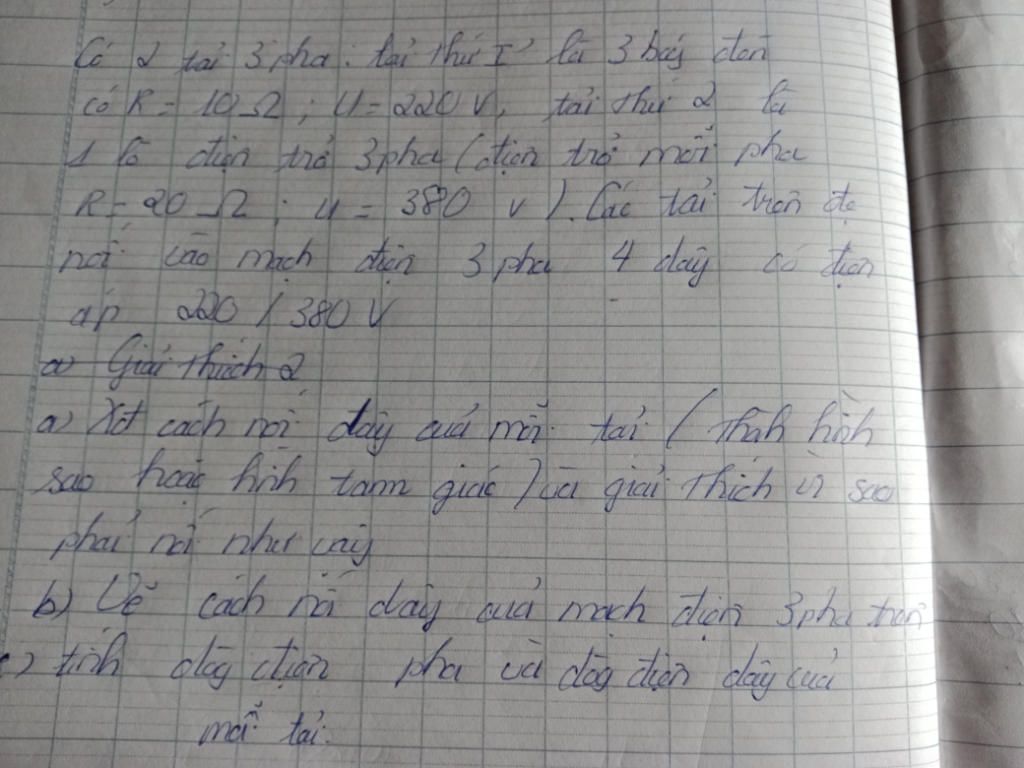 Có 2 tải 3 pha: tải thứ I là 3 bóng đèn
có R = 10 Ω ; U = 220 V, tải thứ 2 là
1 lò điện trở 3 pha (điện trở mỗi pha
R = 20 Ω ; U = 380 V). Các tải trên đc
nối vào mạch điện 3 pha 4 dây có điện
áp 220 / 380 V
a) Giải thích 2
a) Xđ cách nối dây của mỗi tải (thành hình
sao hoặc hình tam giác) và giải thích vì sao
phải nối như vậy
b) Vẽ cách nối dây của mạch điện 3 pha trên
c) tính dòng điện pha và dòng điện dây của
mỗi tải.